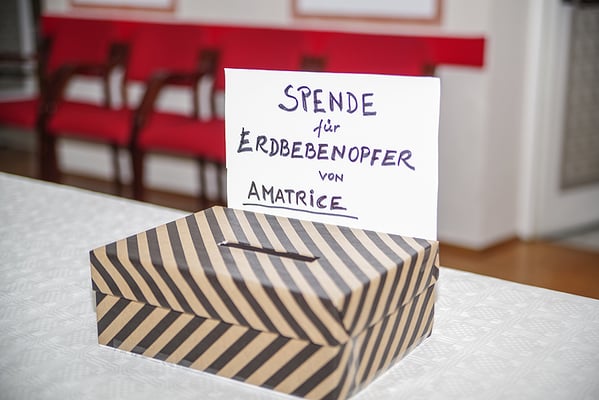 SPENDE
für
ERDBEBENOPFER
VON
AMATRICE